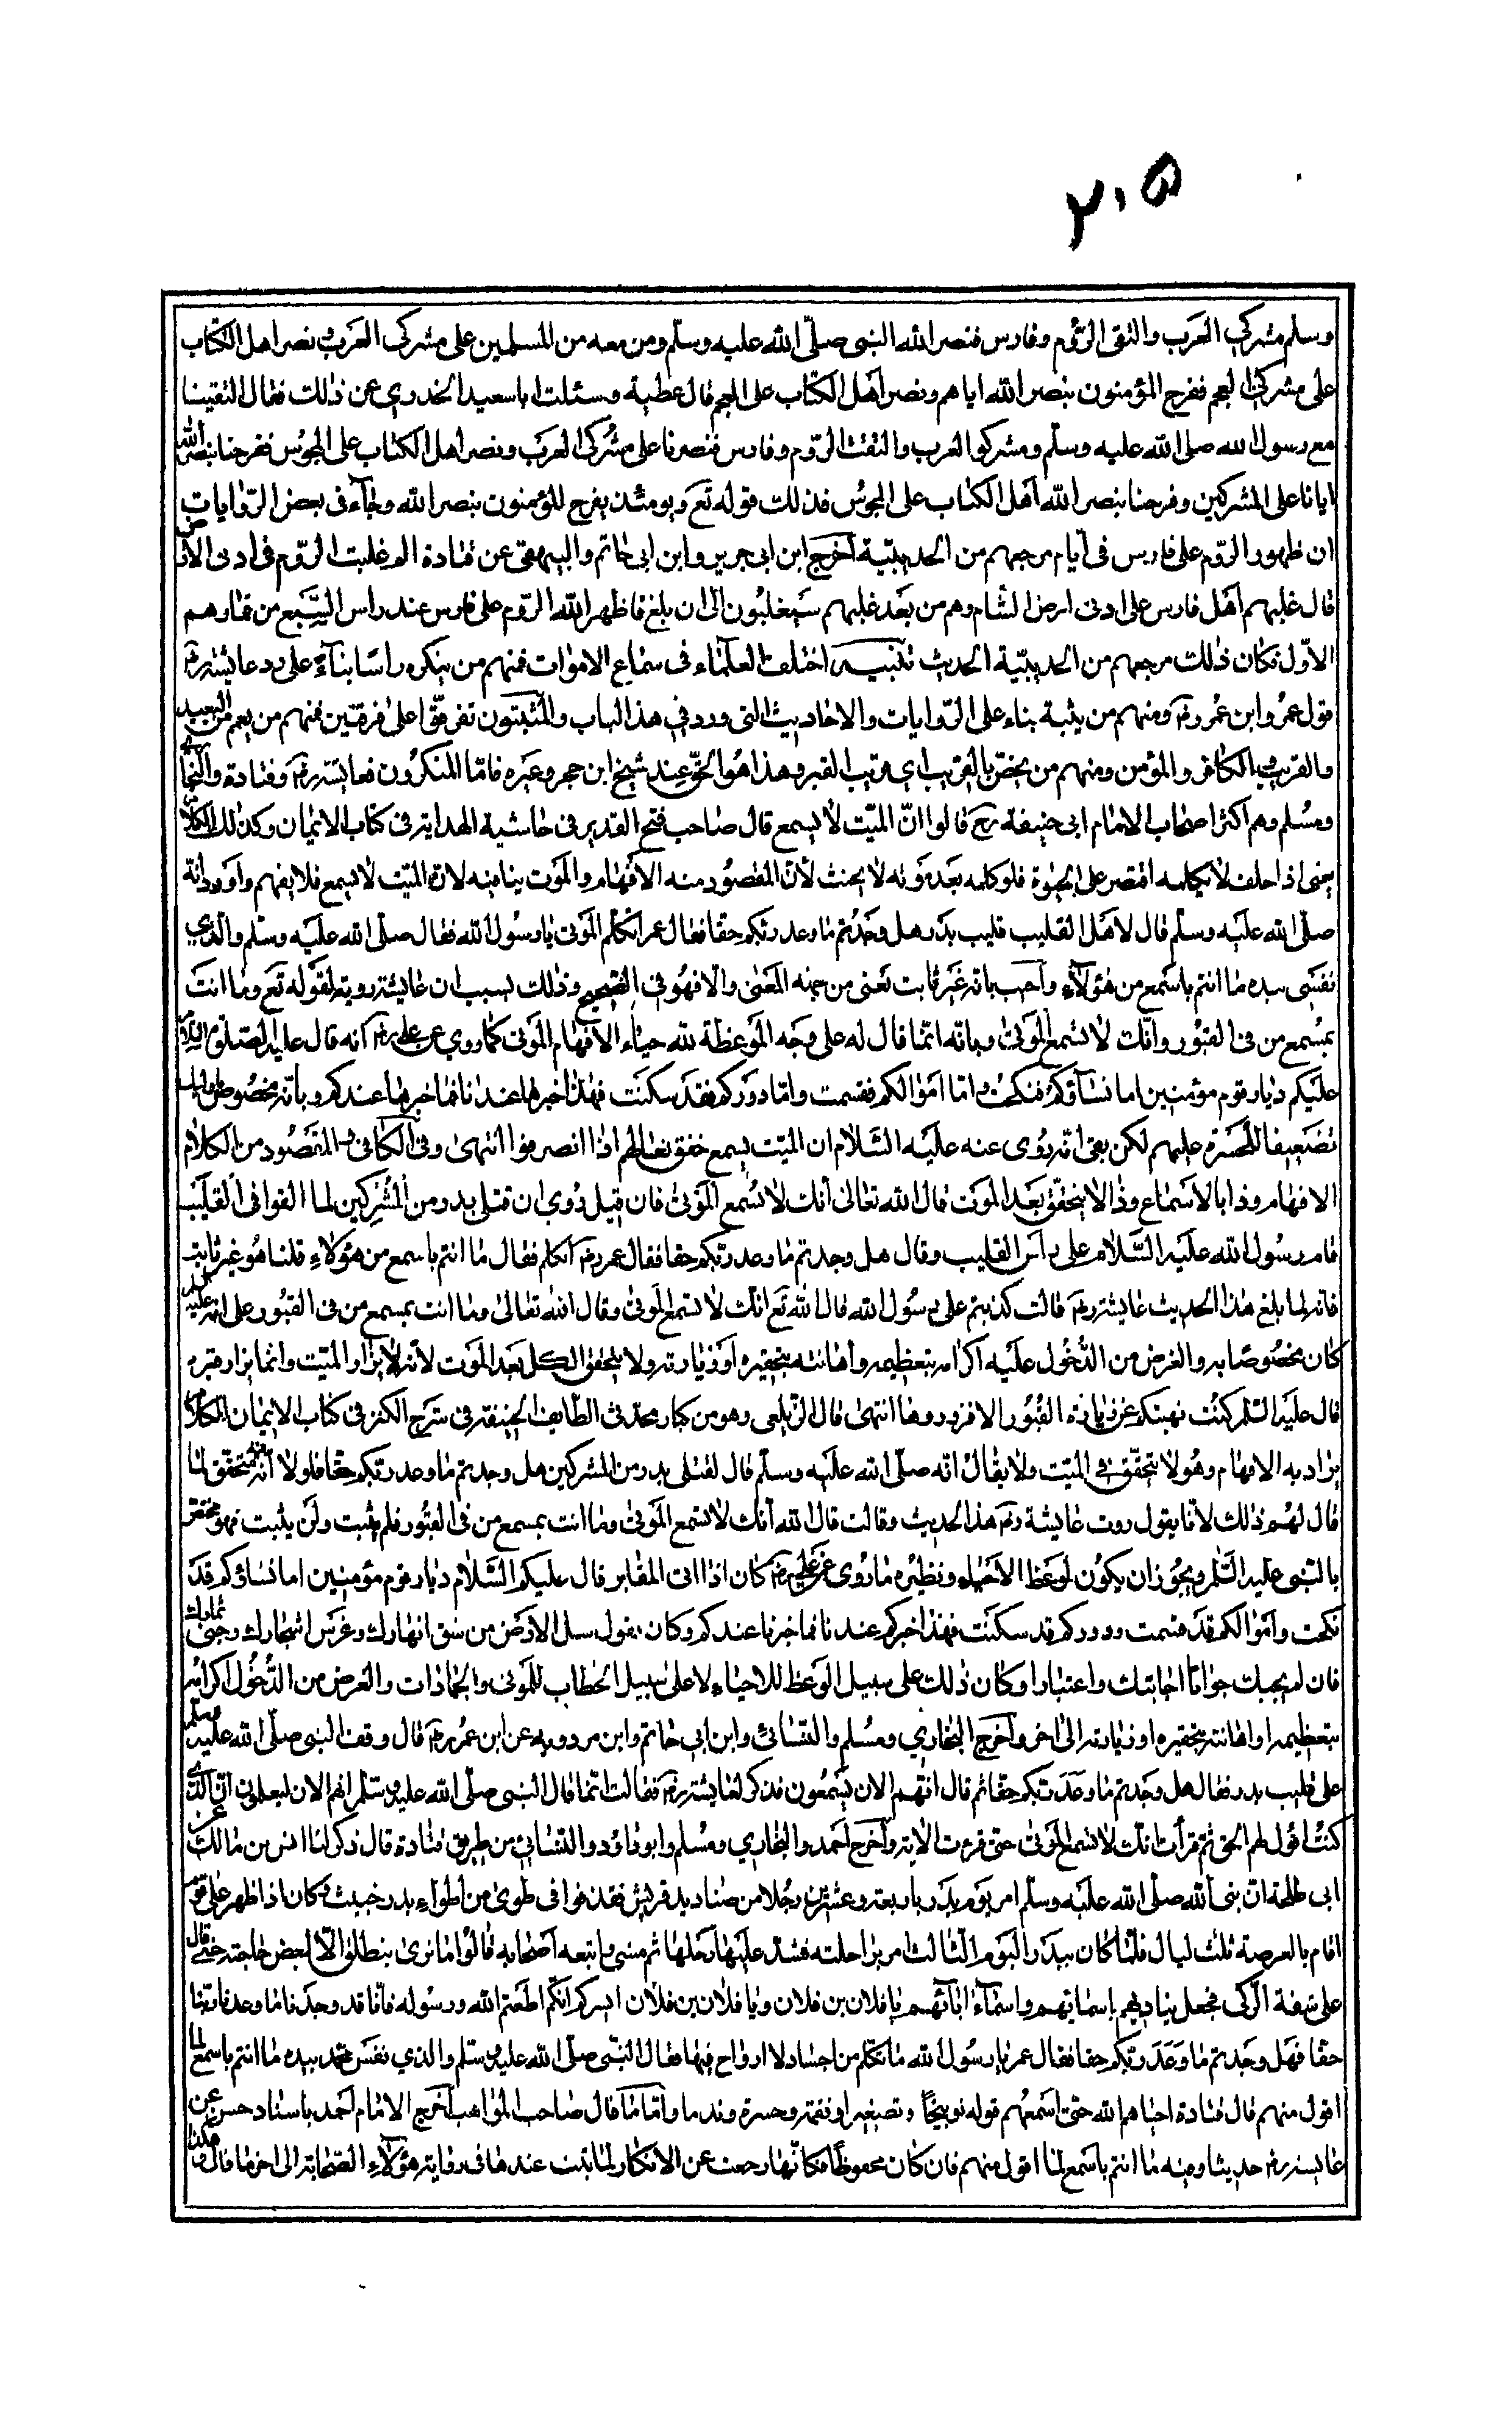 ٢٠٥
وسلم مشركي العرب والتقى الروم وفارس فنصر الله النبى صلى الله عليه وسلم ومن معه من المسلمين على مشركى العرب ونصر اهل الكتاب
على مشركى العجم ففرح المؤمنون بنصر الله اياهم ونصر اهل الكتاب على العجم قال عطية وسئلت ابا سعيد الخدري عن ذلك فقال التقينا
مع رسول الله صلى الله عليه وسلم ومشركو العرب والتقت الروم وفارس فنصرنا على مشركى العرب ونصر اهل الكتاب على المجوس ففرحنا بنصر الله
ايانا على المشركين وفرحنا بنصر الله اهل الكتاب على المجوس فذلك قوله تع ويومئذ يفرح المؤمنون بنصر الله وجاء فى بعض الروايات
ان ظهور الروم على فارس فى ايام مرجعهم من الحديبية اخرج ابن ابى جرير وابن ابى حاتم والبيهقى عن قتادة الم غلبت الروم فى ادنى الارض
قال غلبهم اهل فارس على ادنى ارض الشام وهم من بعد غلبهم سيغلبون الى ان بلغ فاظهر الله الروم على فارس عند راس السبع من قمارهم
الاول فكان ذلك مرجعهم من الحديبية الحديث تنبيه اختلف العلماء فى سماع الاموات فمنهم من ينكره راسا بناء على رد عايشة رض
قول عمر وابن عمر رض ومنهم من يثبة بناء على الروايات والاحاديث التى ورد في هذا الباب والمثبتون تفرقوا على فرقتين فمنهم من يعم من البعيد
والقريب والكافر والمؤمن ومنهم من يخص بالقريب اي قريب القبر وهذا هو الحق عند شيخ ابن حجر وغيره فاما المنكرون فعايشة رض وقتادة
ومسلم وهم اكثر اصحاب الامام ابى حنيفة رح قالوا ان الميت لا يسمع قال صاحب فتح القدير فى حاشية الهداية فى كتاب الايمان وكذلك الكلام
يعنى اذا حلف لا يكلمه اقتصر على الحيوة فلو كلمه بعد موته لا يحنث لان المقصود منه الافهام والموت ينافيه لان الميت لا يسمع فلا يفهم واورد انه
صلى الله عليه وسلم قال لاهل القليب قليب بدر هل وجدتم ما وعد ربكم حقا فقال عمر اتكلم الموتى يا رسول الله فقال صلى الله عليه وسلم والذي
نفسى بيده ما انتم باسمع من هؤلاء واجيب بانه غير ثابت يعنى من جهة المعنى والا فهو فى الصحيح وذلك بسبب ان عايشة ردته لقوله تع وما انت
بمسمع من فى القبور وانك لا تسمع الموتى وبانه انما قال له على وجه الموعظة لله حياء لا افهام الموتى كما روي عن على رض انه قال عليه الصلوة السلام
عليكم ديار قوم مؤمنين اما نساؤكم فنكحت واما اموالكم فقسمت واما دوركم فقد سكنت فهذا خبرها عندنا فما خبرها عندكم وبانه مخصوص
تضعيفا للحسرة عليهم لكن بقى انه روى عنه عليه السلام ان الميت يسمع خفق نعالهم اذا انصرفوا انتهى وفى الكافى المقصود من الكلام
الافهام وذا بالاسماع وذا لا يتحقق بعد الموت قال الله تعالى انك لا تسمع الموتى فان قيل روي ان قتلى بدر من المشركين لما القوا فى القليب
قام رسول الله عليه السلام على راس القليب وقال هل وجدتم ما وعد ربكم حقا فقال عمر رض اتكلم فقال ما انتم باسمع من هؤلاء قلنا هو غير ثابت
فانه لما بلغ هذا الحديث عايشة رض قالت كذبتم على رسول الله قال الله تع انك لا تسمع الموتى وقال الله تعالى وما انت بمسمع من فى القبور على انه عليه السلم
كان مخصوصا به والغرض من الدخول عليه اكرامه بتعظيمه واهانته بتحقيره او زيارته ولا يتحقق الكل بعد الموت لانه لا يزار الميت وانما يزار قبره
قال عليه السلم كنت نهيتكم عن زيارة القبور الا فزوروها انتهى قال الزيلعى وهو من كبار محدثى الطايفة الحنيفة فى شرح الكنز فى كتاب الايمان الكلام
يراد به الافهام وهو لا يتحقق فى الميت ولا يقال انه صلى الله عليه وسلم قال لقتلى بدر من المشركين هل وجدتم ما وعد ربكم حقا فلولا انه يتحقق لما
قال لهم ذلك لانا يقول روت عايشة رض هذا الحديث وقالت قال الله انك لا تسمع الموتى وما انت بمسمع من فى القبور فلم يثبت ولن يثبت فهو مختص
بالنبى عليه السلم ويجوز ان يكون لوعظ الاحياء ونظيره ما روى عن على رض كان اذا اتى المقابر قال عليكم السلام ديار قوم مؤمنين اما نساؤكم قد
نكحت واموالكم قد قسمت ودوركم قد سكنت فهذا خبركم عندنا فما خبرنا عندكم وكان يقول سل الارض من شق انهارك وغرس اشجارك وجنى ثمارك
فان لم يجبك جوابا اجابتك واعتبارا وكان ذلك على سبيل الوعظ للاحياء لا على سبيل الخطاب للموتى والجمادات والغرض من الدخول اكرامه
بتعظيمه او اهانته بتحقيره او زيارته الى اخر واخرج البخاري ومسلم والنسائى وابن ابى حاتم وابن مردويه عن ابن عمر رض قال وقف النبى صلى الله عليه وسلم
على قليب بدر فقال هل وجدتم ما وعد ربكم حقا ثم قال انهم الان يسمعون فذكر لعايشة رض فقالت انما قال النبى صلى الله عليه وسلم انهم الان ليعلمون ان الذى
كنت اقول لهم الحق ثم قرأت انك لا تسمع الموتى حتى قرءت الاية واخرج احمد والبخاري ومسلم وابو داؤد والنسائي من طريق قتادة قال ذكر لنا انس بن مالك عن
ابى طلحة ان نبى الله صلى الله عليه وسلم امر يوم بدر باربعة وعشرين رجلا من صناديد قريش فقذفوا فى طوى من اطواء بدر خبيث وكان اذا ظهر على قوم
اقام بالعرصة ثلث ليال فلما كان ببدر اليوم الثالث امر براحلته فشد عليها رحلها ثم مشى واتبعه اصحابه قالوا ما نرى ينطلق الا لبعض حاجته حتى قال
على شفة الركى فجعل يناديهم باسمائهم واسماء ابائهم يا فلان بن فلان ويا فلان بن فلان ايسركم انكم اطعتم الله ورسوله فانا قد وجدنا ما وعدنا ربنا
حقا فهل وجدتم ما وعد ربكم حقا فقال عمر يا رسول الله ما تكلم من اجساد لا ارواح فيها فقال النبى صلى الله عليه وسلم والذي نفس محمد بيده ما انتم باسمع لما
اقول منهم قال قتادة احياهم الله حتى اسمعهم قوله توبيخا وتصغيرا ونقمة وحسرة وندما واما ما قال صاحب المواهب اخرج الامام احمد باسناد حسن عن
عايشة رض حديثا وفيه ما انتم باسمع لما اقول منهم فان كان محفوظا فكانها رجعت عن الانكار لما ثبت عندها فى رواية هؤلاء الصحابة الى اخرها قال وهكذا